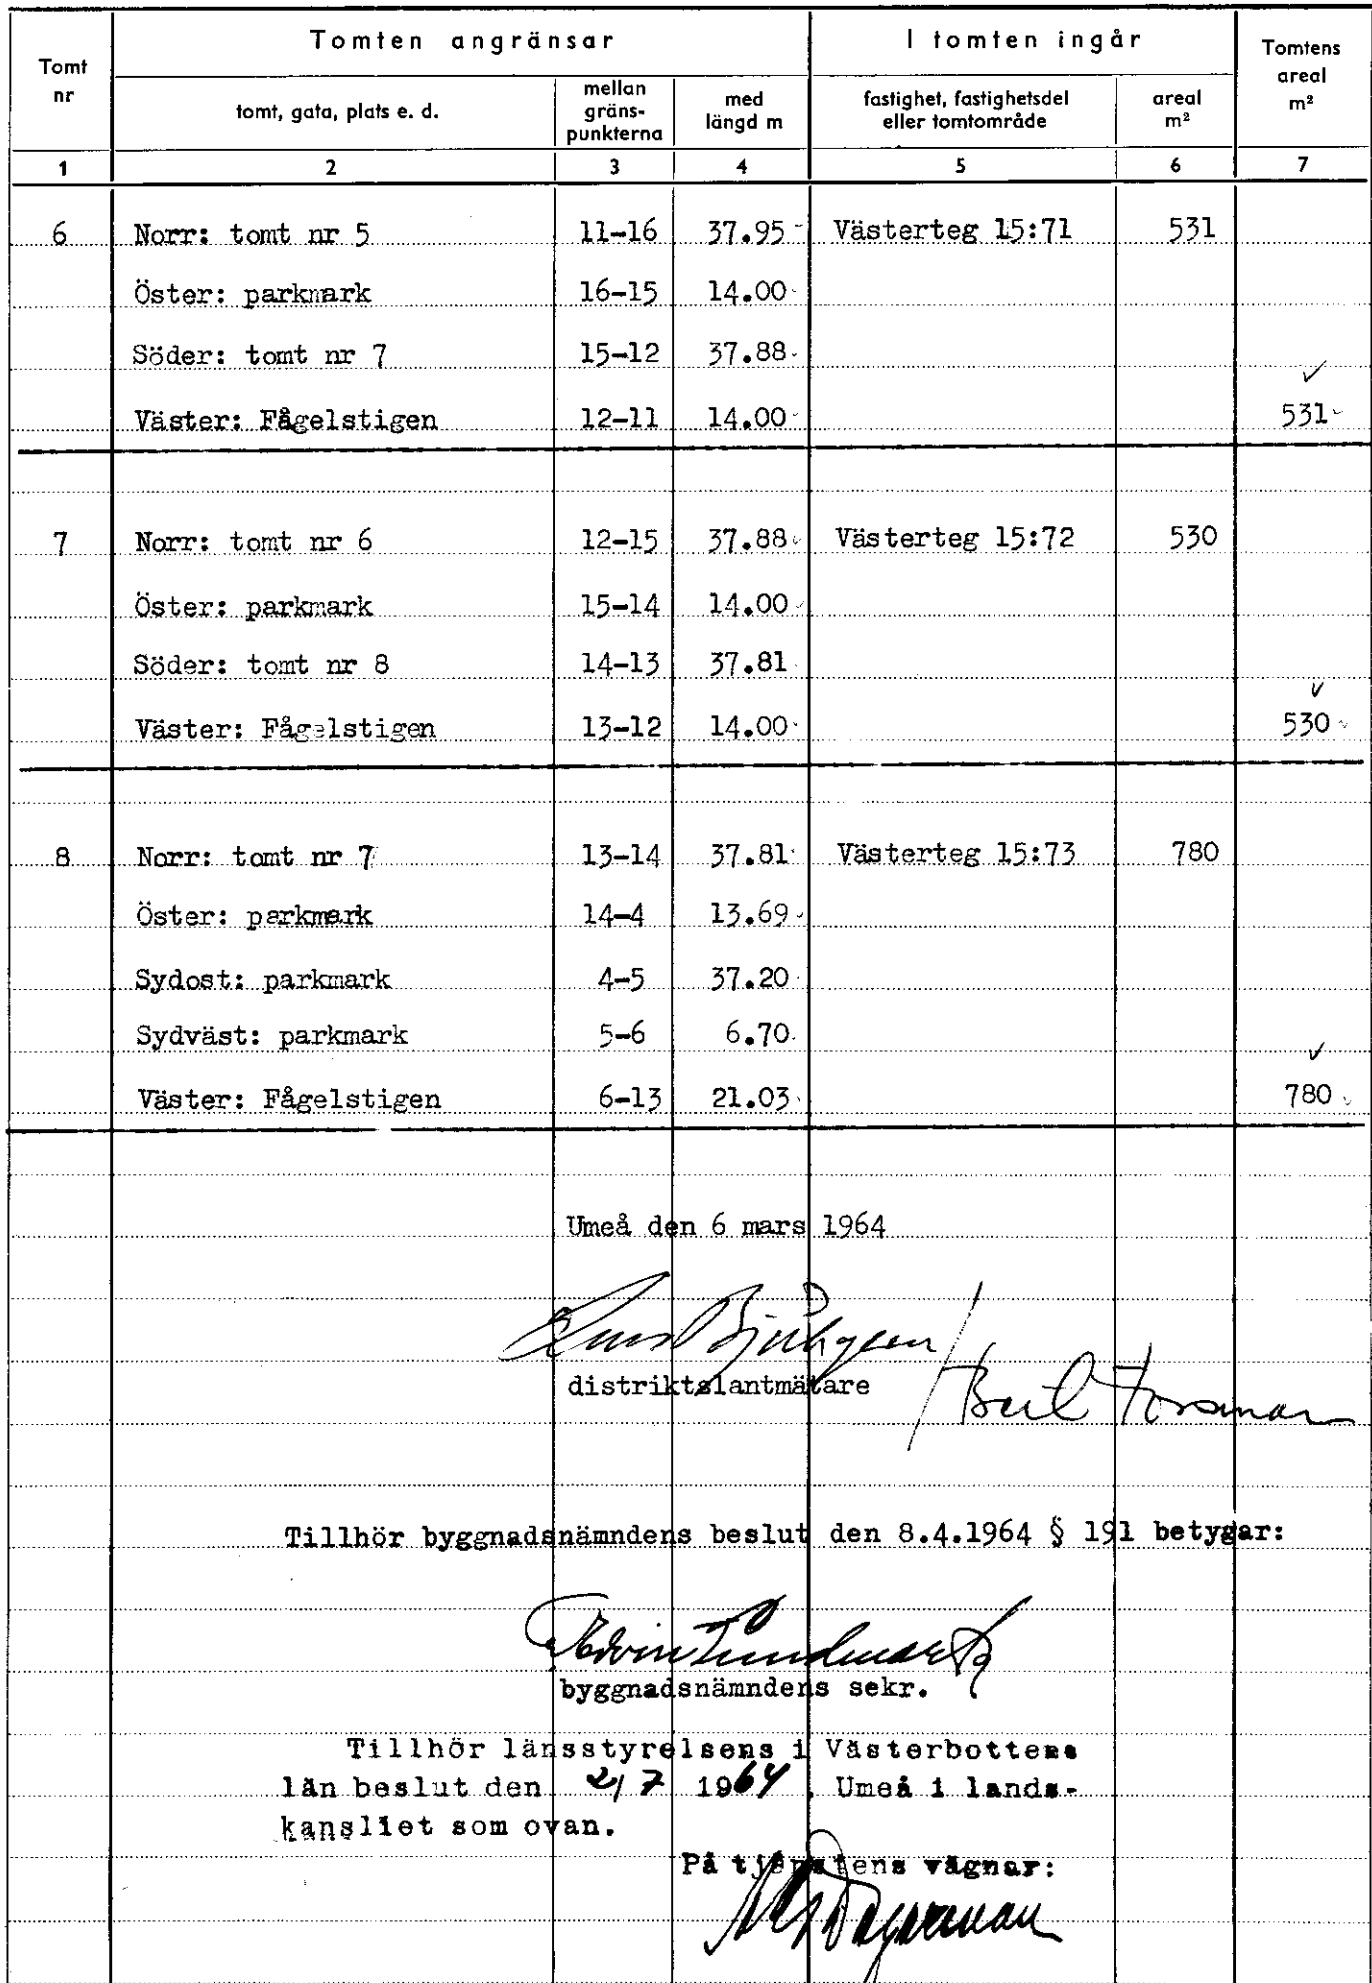 Tomt nr | Tomten angränsar | I tomten ingår | Tomtens areal m²
tomt, gata, plats e. d. | mellan gräns-punkterna | med längd m | fastighet, fastighetsdel eller tomtområde | areal m²
1 | 2 | 3 | 4 | 5 | 6 | 7
6 | Norr: tomt nr 5 | 11-16 | 37.95 | Västerteg 15:71 | 531
Öster: parkmark | 16-15 | 14.00
Söder: tomt nr 7 | 15-12 | 37.88 | ✓
Väster: Fågelstigen | 12-11 | 14.00 | 531
7 | Norr: tomt nr 6 | 12-15 | 37.88 | Västerteg 15:72 | 530
Öster: parkmark | 15-14 | 14.00
Söder: tomt nr 8 | 14-13 | 37.81 | ✓
Väster: Fågelstigen | 13-12 | 14.00 | 530
8 | Norr: tomt nr 7 | 13-14 | 37.81 | Västerteg 15:73 | 780
Öster: parkmark | 14-4 | 13.69
Sydost: parkmark | 4-5 | 37.20
Sydväst: parkmark | 5-6 | 6.70 | ✓
Väster: Fågelstigen | 6-13 | 21.03 | 780
Umeå den 6 mars 1964
distriktslantmätare
Tillhör byggnadsnämndens beslut den 8.4.1964 § 191 betygar:
byggnadsnämndens sekr.
Tillhör länsstyrelsens i Västerbottens
län beslut den 2/7 1964, Umeå i lands-
kansliet som ovan.
På tjänstens vägnar: